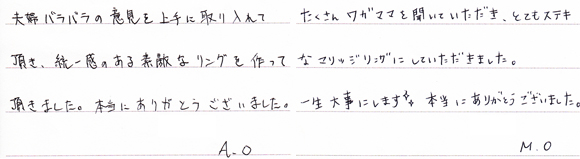 夫婦バラバラの意見を上手に取り入れて
頂き、統一感のある素敵なリングを作って
頂きました。本当にありがとうございました。
A.O
たくさんワガママを聞いていただき、とてもステキ
なマリッジリングにしていただきました。
一生大事にします✨ 本当にありがとうございました。
M.O